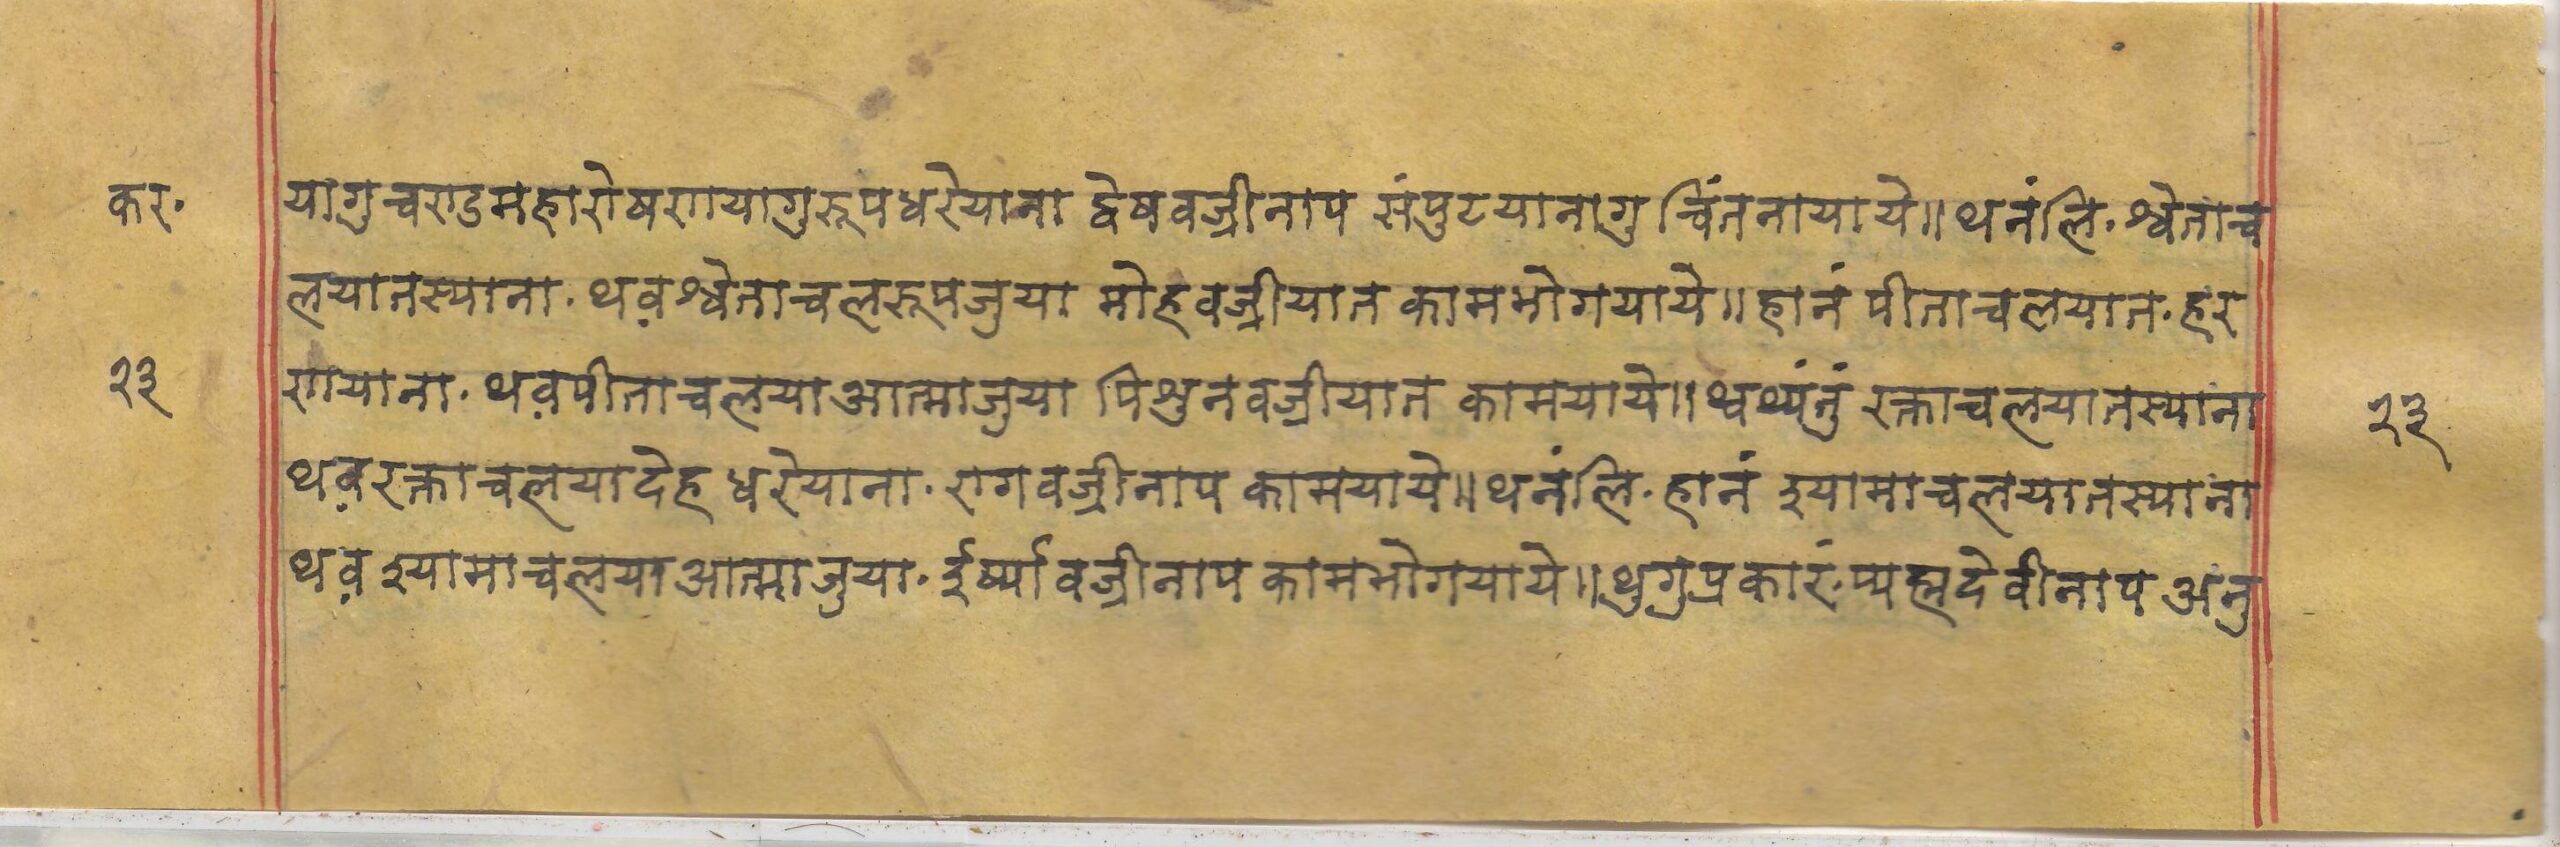 कर॰
यागु चण्डमहारोषणयागु रूप धरेयाना द्वेषवज्रीनाप संपुटयानागु चिंतनायाये॥ थनंलि॰ श्वेताच
लयातस्याना॰ थव़श्वेताचलरूपजुया मोहवज्रीयात कामभोगयाये॥ हानं पीताचलयात॰ हर
२३
णयाना॰ थव़पीताचलयाआत्माजुया पिशुनवज्रीयात कामयाये॥ थ्वथ्यंनुं रक्ताचलयातस्याना
२३
थव़रक्ताचलयादेह धरेयाना॰ रागवज्रीनाप कामयाये॥ थनंलि॰ हानं श्यामाचलयातस्याना
थव़ श्यामाचलयाआत्माजुया॰ ईर्ष्यावज्रीनाप कामभोगयाये॥ थुगुप्रकारं॰ प्यह्मदेवीनाप अनु